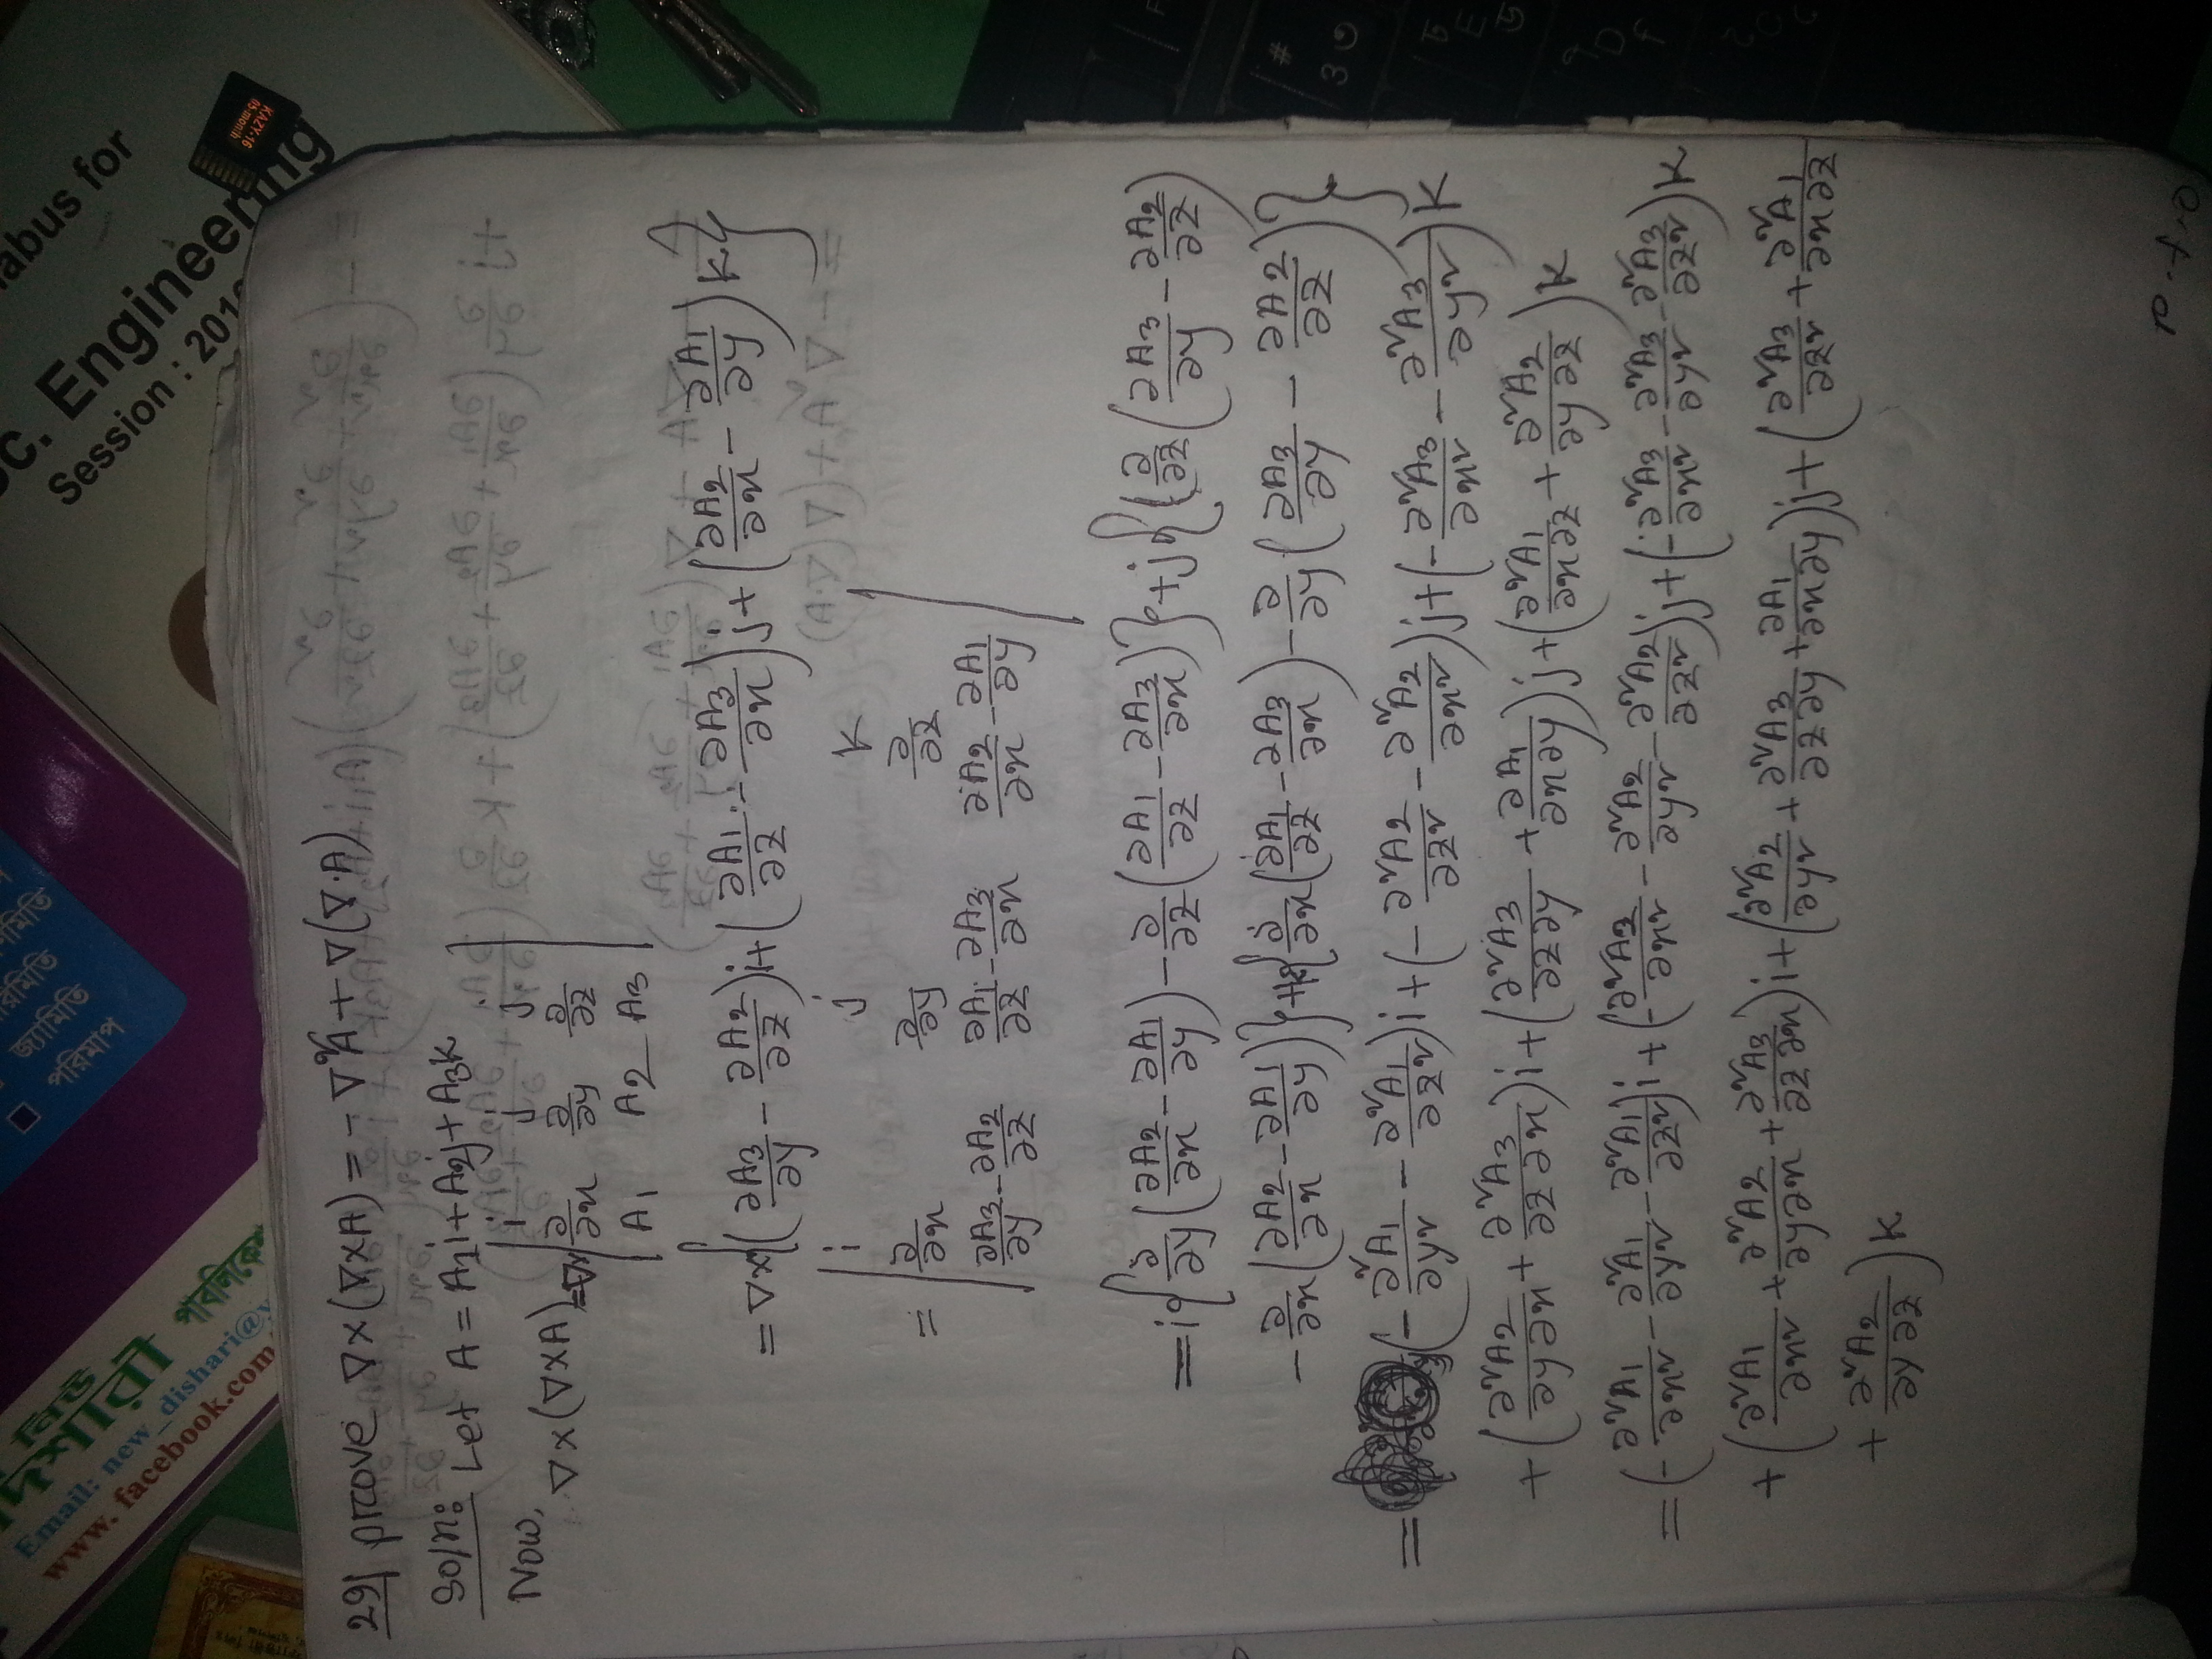 নিউ
দিশারী
পাবলিকেশ
Email: new_dishari@y
www. facebook.com
জ্যামিতি
পরিমাপ
labus for
Sc. Engineering
Session : 201
KAZY-16
05-month
29| prove ∇×(∇×A) = -∇²A + ∇(∇·A)
Soln: Let A = A₁i + A₂j + A₃k
Now,
∇×(∇×A) = ∇× | i j j |
| ∂/∂x ∂/∂y ∂/∂z |
| A₁ A₂ A₃ |
= ∇×{(∂A₃/∂y - ∂A₂/∂z)i + (∂A₁/∂z - ∂A₃/∂x)j + (∂A₂/∂x - ∂A₁/∂y)k}
= | i j k |
| ∂/∂x ∂/∂y ∂/∂z |
| ∂A₃/∂y - ∂A₂/∂z ∂A₁/∂z - ∂A₃/∂x ∂A₂/∂x - ∂A₁/∂y |
= i{∂/∂y(∂A₂/∂x - ∂A₁/∂y) - ∂/∂z(∂A₁/∂z - ∂A₃/∂x)} + j{(∂/∂z(∂A₃/∂y - ∂A₂/∂z)
- ∂/∂x(∂A₂/∂x - ∂A₁/∂y)} + k{∂/∂x(∂A₁/∂z - ∂A₃/∂x) - ∂/∂y(∂A₃/∂y - ∂A₂/∂z)}
= (-∂²A₁/∂y² - ∂²A₁/∂z²)i + (-∂²A₂/∂z² - ∂²A₂/∂x²)j + (-∂²A₃/∂x² - ∂²A₃/∂y²)k
+ (∂²A₂/∂y∂x + ∂²A₃/∂z∂x)i + (∂²A₃/∂z∂y + ∂A₁/∂x∂y)j + (∂²A₁/∂x∂z + ∂²A₂/∂y∂z)k
= (-∂²A₁/∂x² - ∂²A₁/∂y² - ∂²A₁/∂z²)i + (-∂²A₂/∂x² - ∂²A₂/∂y² - ∂²A₂/∂z²)j + (-∂²A₃/∂x² - ∂²A₃/∂y² - ∂²A₃/∂z²)k
+ (∂²A₁/∂x² + ∂²A₂/∂y∂x + ∂²A₃/∂z∂x)i + (∂²A₂/∂y² + ∂²A₃/∂z∂y + ∂A₁/∂x∂y)j + (∂²A₃/∂z² + ∂²A₁/∂x∂z
+ ∂²A₂/∂y∂z)k